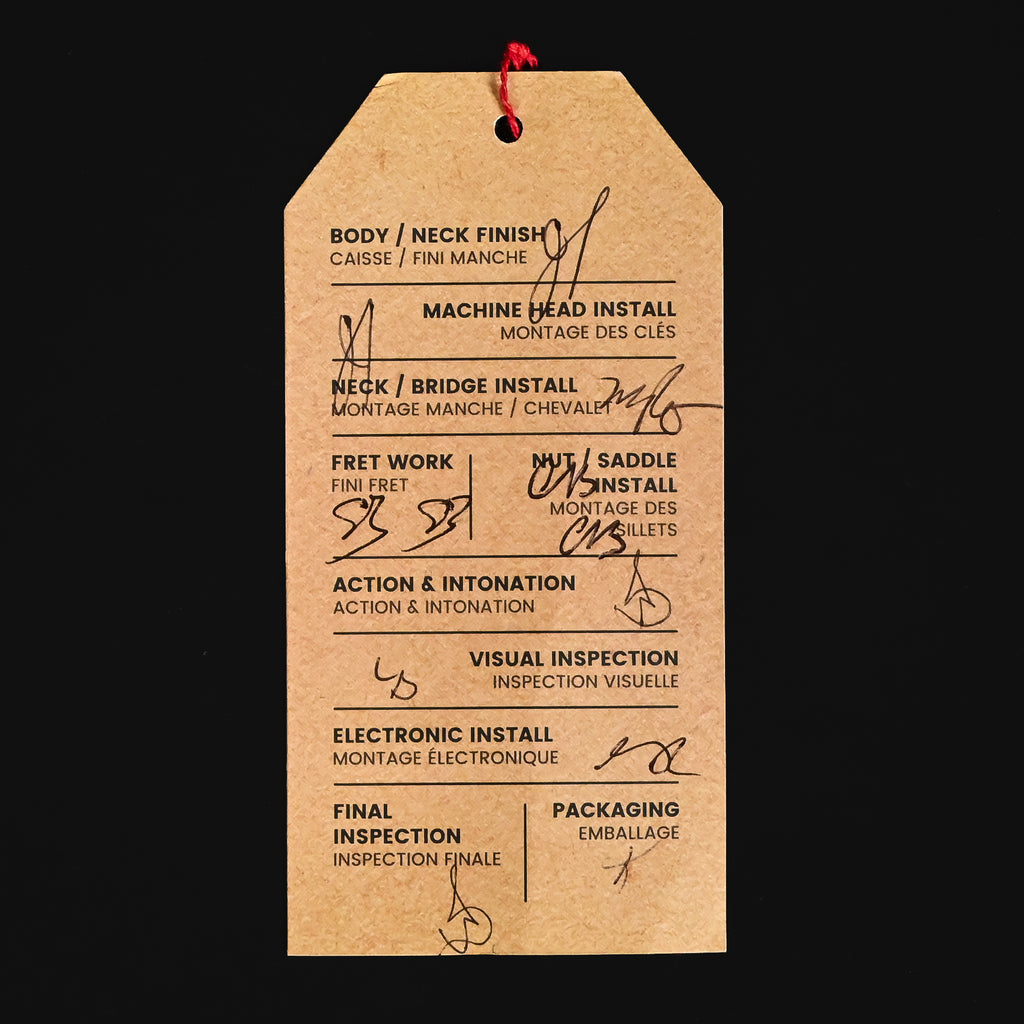 BODY / NECK FINISH
CAISSE / FINI MANCHE
MACHINE HEAD INSTALL
MONTAGE DES CLÉS
NECK / BRIDGE INSTALL
MONTAGE MANCHE / CHEVALET
FRET WORK
FINI FRET
SB SB
NUT / SADDLE
INSTALL
MONTAGE DES
SILLETS
CNB
CNB
ACTION & INTONATION
ACTION & INTONATION
VISUAL INSPECTION
INSPECTION VISUELLE
ELECTRONIC INSTALL
MONTAGE ÉLECTRONIQUE
FINAL
INSPECTION
INSPECTION FINALE
PACKAGING
EMBALLAGE